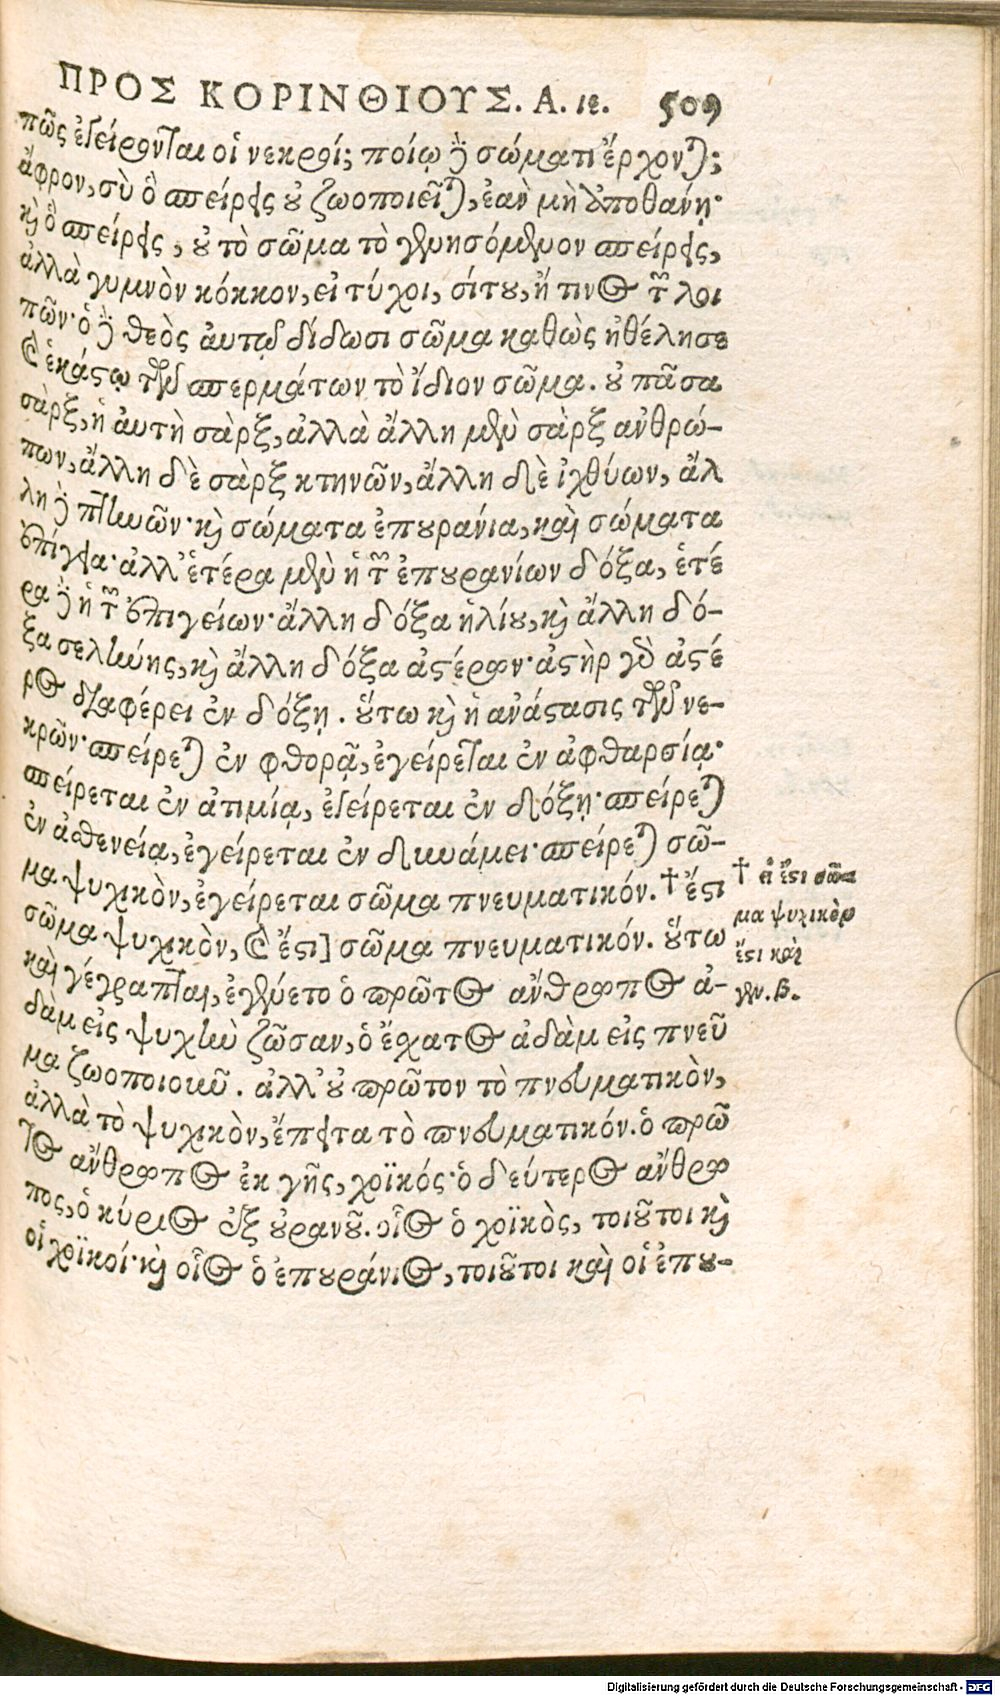 ΠΡΟΣ ΚΟΡΙΝΘΙΟΥΣ. Α. ιε. 509
πῶς ἐγείρονται οἱ νεκροί; ποίῳ δὲ σώματι ἔρχονται;
ἄφρον, σὺ ὃ σπείρεις οὐ ζωοποιεῖται, ἐὰν μὴ ἀποθάνῃ·
καὶ ὃ σπείρεις, οὐ τὸ σῶμα τὸ γενησόμενον σπείρεις,
ἀλλὰ γυμνὸν κόκκον, εἰ τύχοι, σίτου, ἤ τινος τῶν λοι
πῶν· ὁ δὲ θεὸς ἀυτῷ δίδωσι σῶμα καθὼς ἠθέλησε
καὶ ἑκάστῳ τῶν σπερμάτων τὸ ἴδιον σῶμα. οὐ πᾶσα
σὰρξ, ἡ ἀυτὴ σὰρξ, ἀλλὰ ἄλλη μὲν σὰρξ ἀνθρώ-
πων, ἄλλη δὲ σὰρξ κτηνῶν, ἄλλη δὲ ἰχθύων, ἄλ
λη δὲ πτηνῶν· καὶ σώματα ἐπουράνια, καὶ σώματα
ἐπίγεια· ἀλλ' ἑτέρα μὲν ἡ τῶν ἐπουρανίων δόξα, ἑτέ
ρα δὲ ἡ τῶν ἐπιγείων· ἄλλη δόξα ἡλίου, καὶ ἄλλη δό-
ξα σελήνης, καὶ ἄλλη δόξα ἀστέρων· ἀστὴρ γὰρ ἀστέ
ρος διαφέρει ἐν δόξῃ. οὕτω καὶ ἡ ἀνάστασις τῶν νε-
κρῶν· σπείρεται ἐν φθορᾷ, ἐγείρεται ἐν ἀφθαρσίᾳ·
σπείρεται ἐν ἀτιμίᾳ, ἐγείρεται ἐν δόξῃ· σπείρεται
ἐν ἀσθενείᾳ, ἐγείρεται ἐν δυνάμει· σπείρεται σῶ-
μα ψυχικὸν, ἐγείρεται σῶμα πνευματικόν. † ἔστι
σῶμα ψυχικὸν, καὶ ἔστι] σῶμα πνευματικόν. οὕτω
καὶ γέγραπται, ἐγένετο ὁ πρῶτος ἄνθρωπος ἀ-
δὰμ εἰς ψυχὴν ζῶσαν, ὁ ἔσχατος ἀδὰμ εἰς πνεῦ
μα ζωοποιοιοῦν. ἀλλ' οὐ πρῶτον τὸ πνευματικὸν,
ἀλλὰ τὸ ψυχικὸν, ἔπειτα τὸ πνευματικόν. ὁ πρῶ
τος ἄνθρωπος ἐκ γῆς, χοϊκός· ὁ δεύτερος ἄνθρω
πος, ὁ κύριος ἐξ οὐρανοῦ. οἷος ὁ χοϊκὸς, τοιοῦτοι καὶ
οἱ χοϊκοί· καὶ οἷος ὁ ἐπουράνιος, τοιοῦτοι καὶ οἱ ἐπου-
† εἰ ἔστι σῶ
μα ψυχικὸν
ἔστι καὶ
γεν. β.
Digitalisierung gefördert durch die Deutsche Forschungsgemeinschaft - DFG